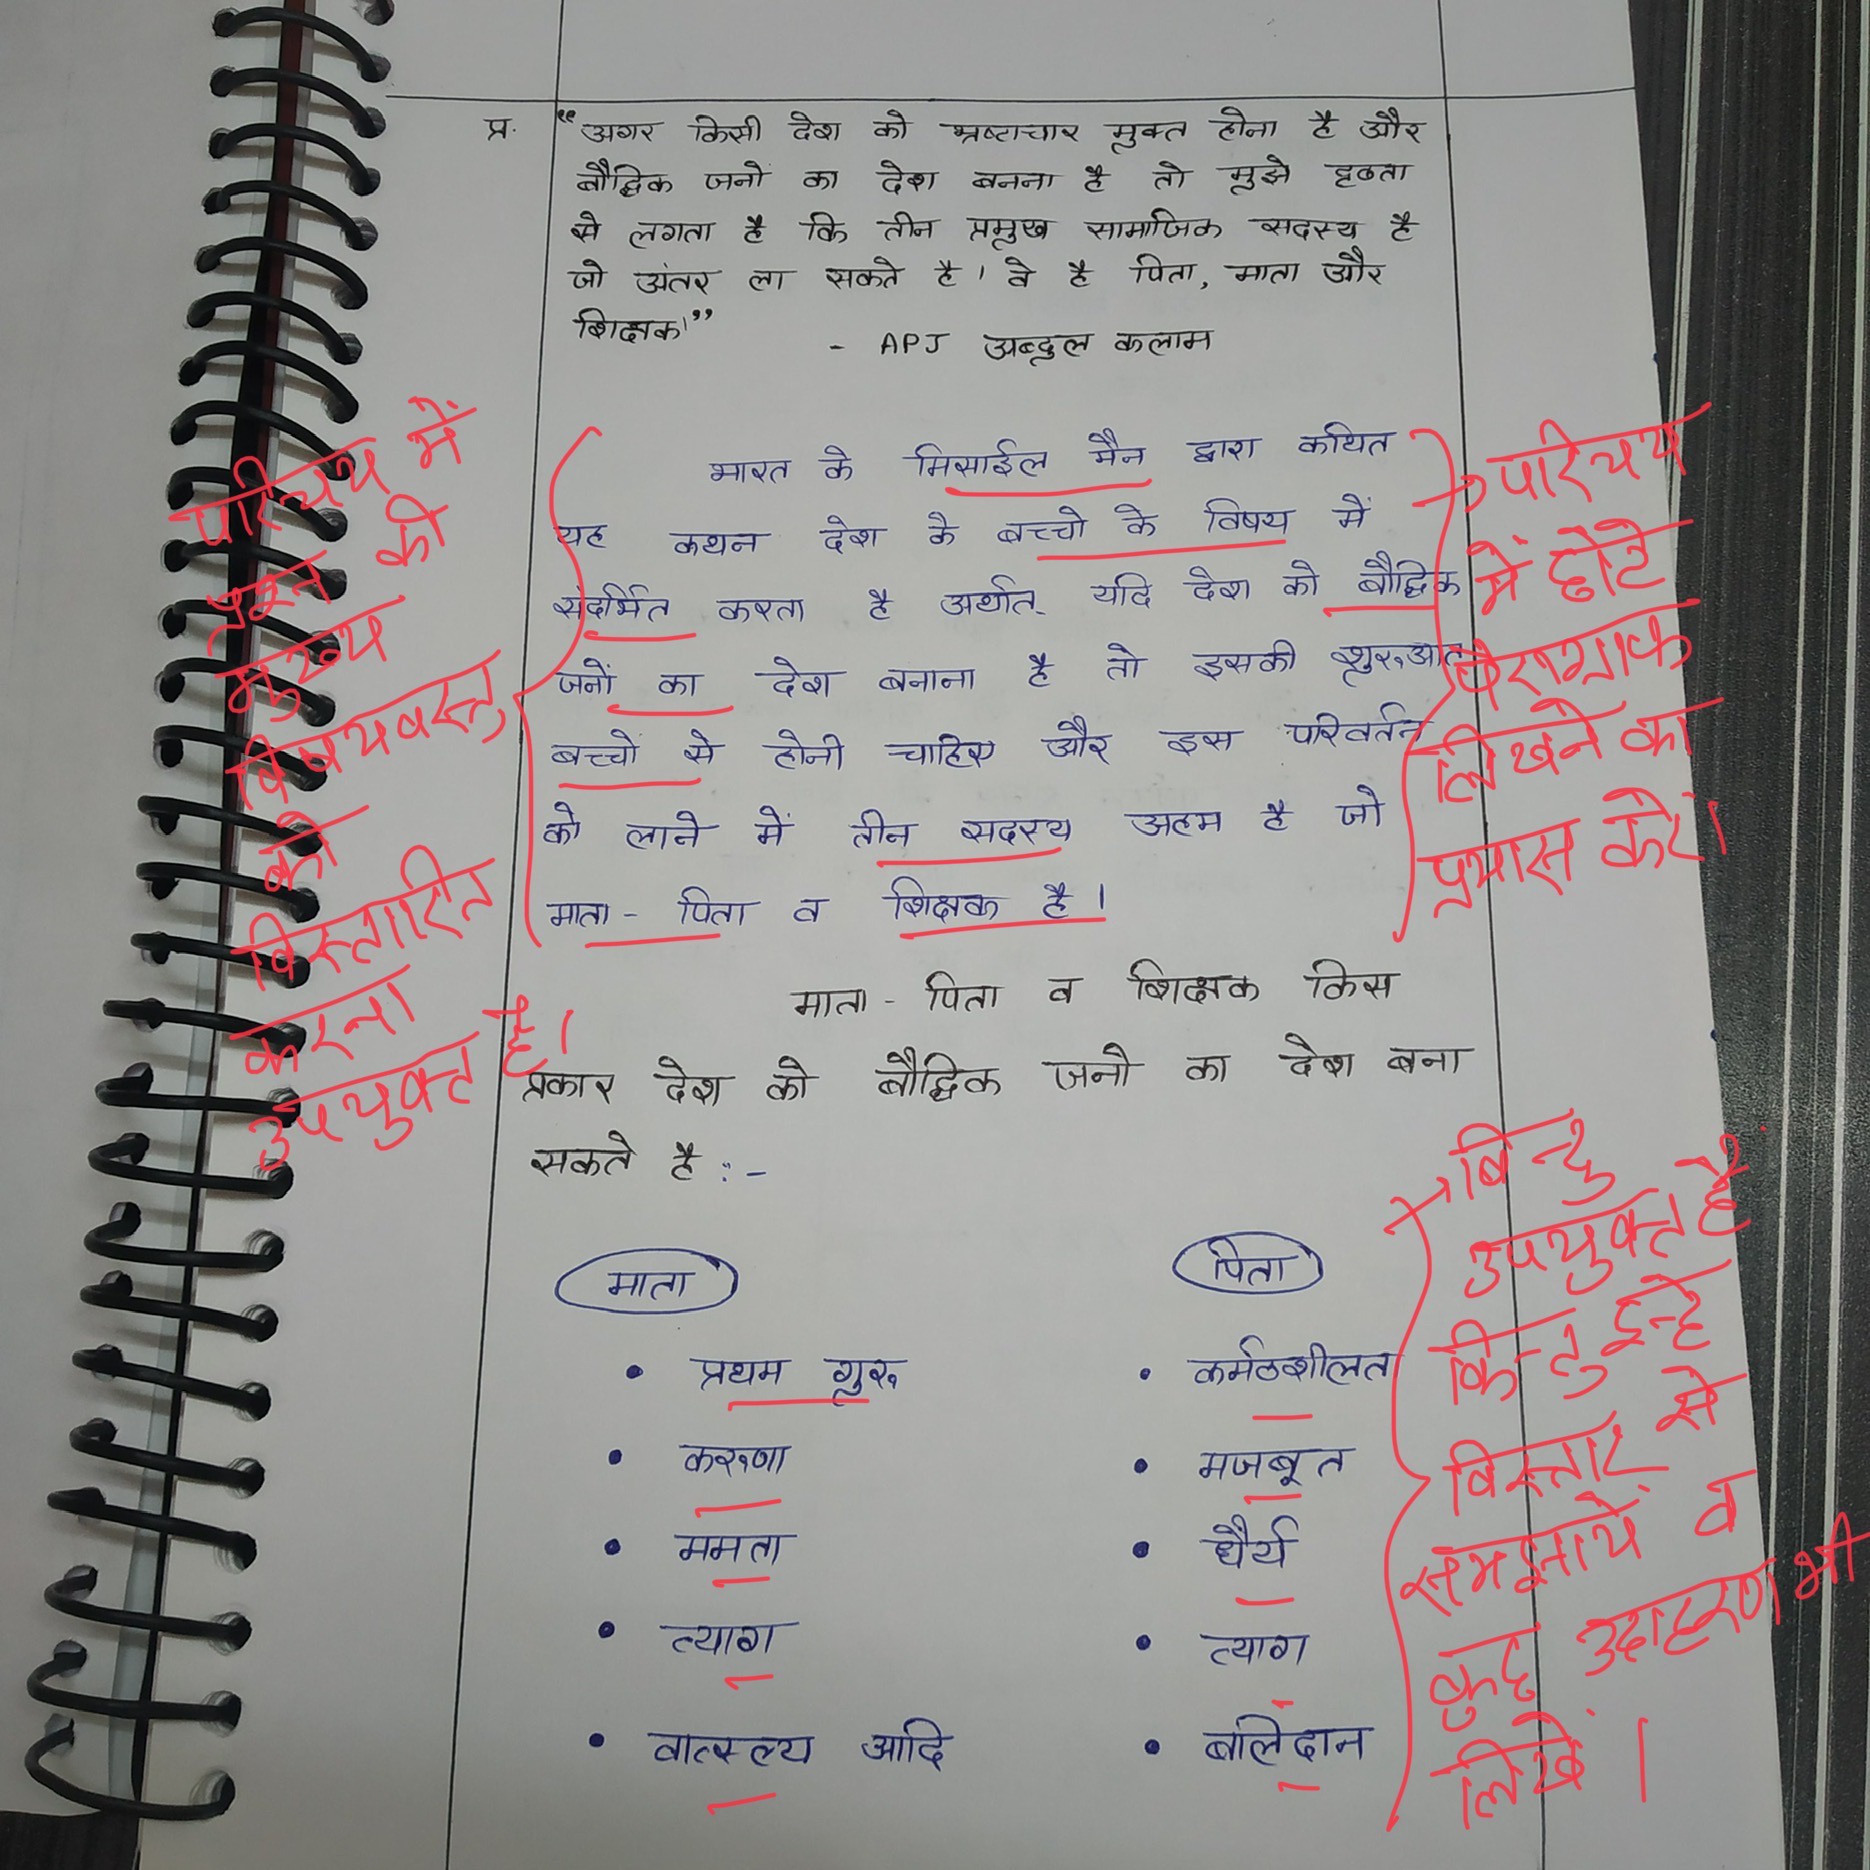 प्र. “अगर किसी देश को भ्रष्टाचार मुक्त होना है और
बौद्धिक जनों का देश बनना है तो मुझे दृढता
से लगता है कि तीन प्रमुख सामाजिक सदस्य है
जो अंतर ला सकते है। वे है पिता, माता और
शिक्षक।”
- APJ अब्दुल कलाम
भारत के मिसाईल मैन द्वारा कथित
यह कथन देश के बच्चो के विषय में
संदर्भित करता है अर्थात यदि देश को बौद्धिक
जनों का देश बनाना है तो इसकी शुरुआत
बच्चों से होनी चाहिए और इस परिवर्तन
को लाने में तीन सदस्य अहम है जो
माता - पिता व शिक्षक है।
माता - पिता व शिक्षक किस
प्रकार देश को बौद्धिक जनो का देश बना
सकते है :-
माता
• प्रथम गुरु
• करुणा
• ममता
• त्याग
• वात्स्ल्य आदि
पिता
• कर्मठशीलता
• मजबूत
• धैर्य
• त्याग
• बलिदान
परिचय में
प्रश्न की
मुख्य
विषयवस्तु
को
विस्तारित
करना
उपयुक्त है।
→ परिचय
में छोटे
पैराग्राफ
लिखने का
प्रयास करें।
→ बिन्दु
उपयुक्त है
किन्तु इन्हे
विस्तार से
समझायें व
कुछ उदाहरण भी
लिखें।